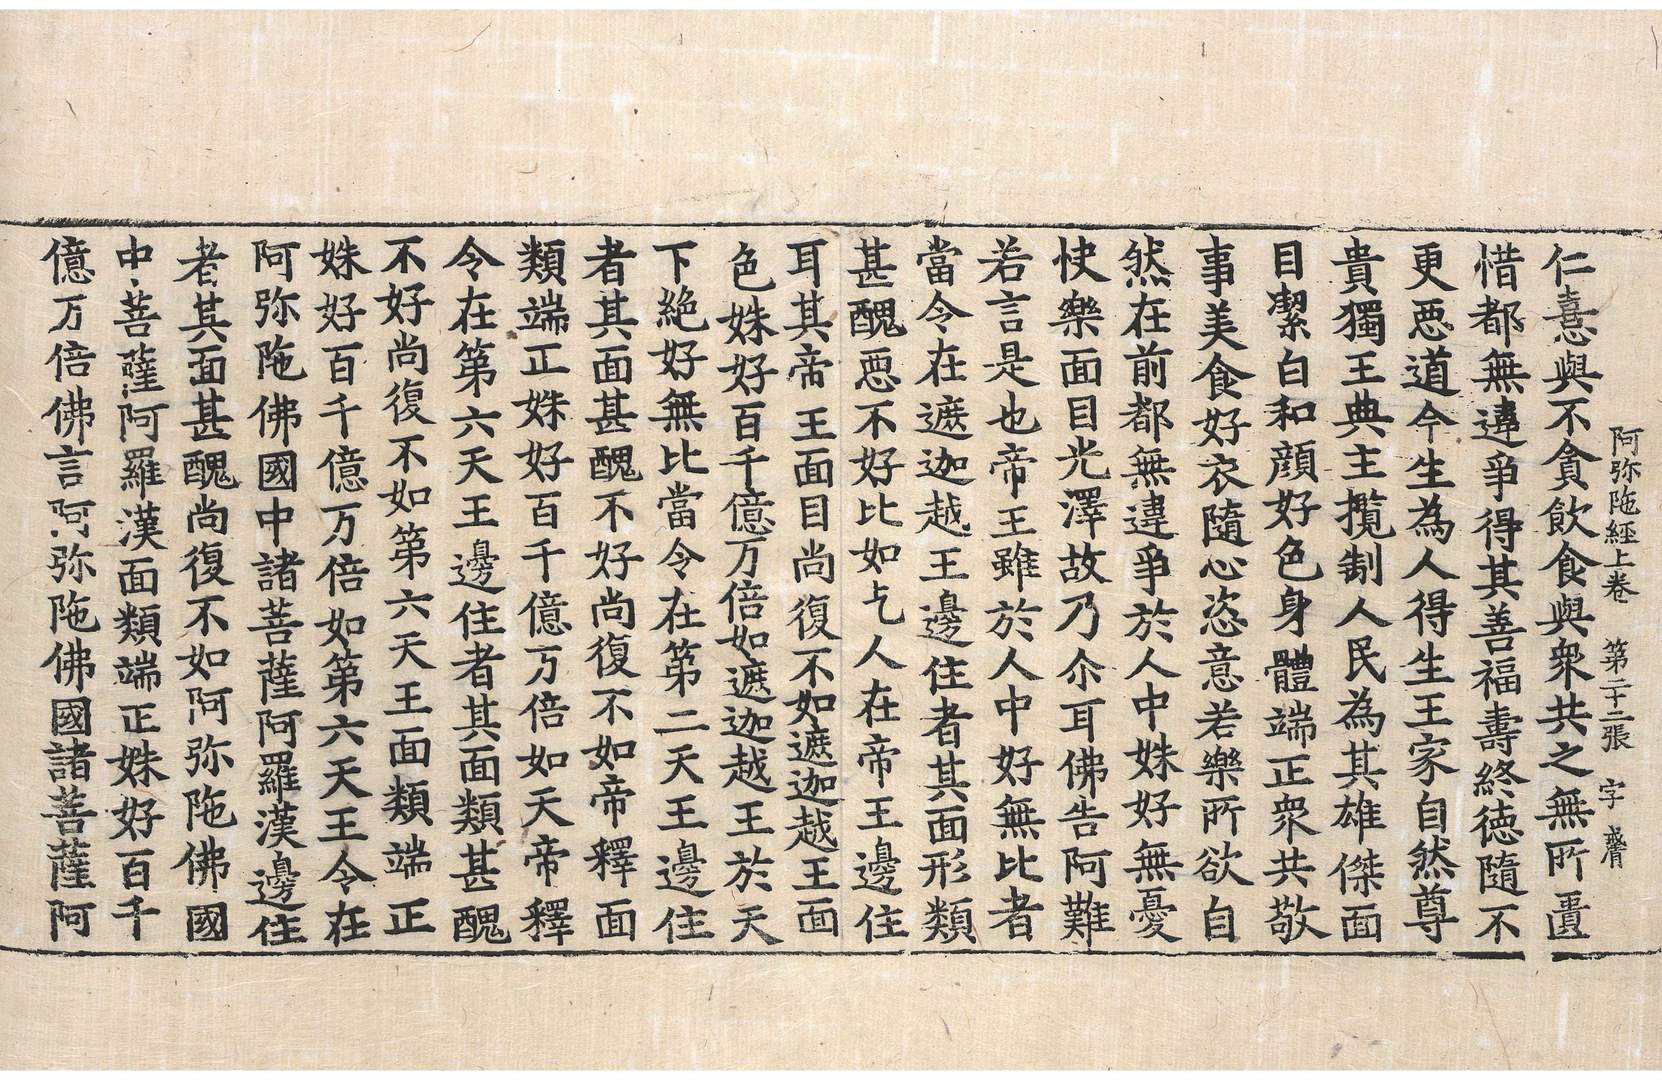 阿弥陁經上卷 第二十二張 字
仁憙與不貪飲食與衆共之無所匱
惜都無違爭得其善福壽終德隨不
更惡道今生為人得生王家自然尊
貴獨王典主攬制人民為其雄傑面
目潔白和顔好色身體端正衆共敬
事美食好衣隨心恣意若樂所欲自
然在前都無違爭於人中姝好無憂
快樂面目光澤故乃尒耳佛告阿難
若言是也帝王雖於人中好無比者
當令在遮迦越王邊住者其面形類
甚醜惡不好比如乞人在帝王邊住
耳其帝王面目尚復不如遮迦越王面
色姝好百千億万倍如遮迦越王於天
下絶好無比當令在第二天王邊住
者其面甚醜不好尚復不如帝釋面
類端正姝好百千億万倍如天帝釋
令在第六天王邊住者其面類甚醜
不好尚復不如第六天王面類端正
姝好百千億万倍如第六天王令在
阿弥陁佛國中諸菩薩阿羅漢邊住
者其面甚醜尚復不如阿弥陁佛國
中菩薩阿羅漢面類端正姝好百千
億万倍佛言阿弥陁佛國諸菩薩阿